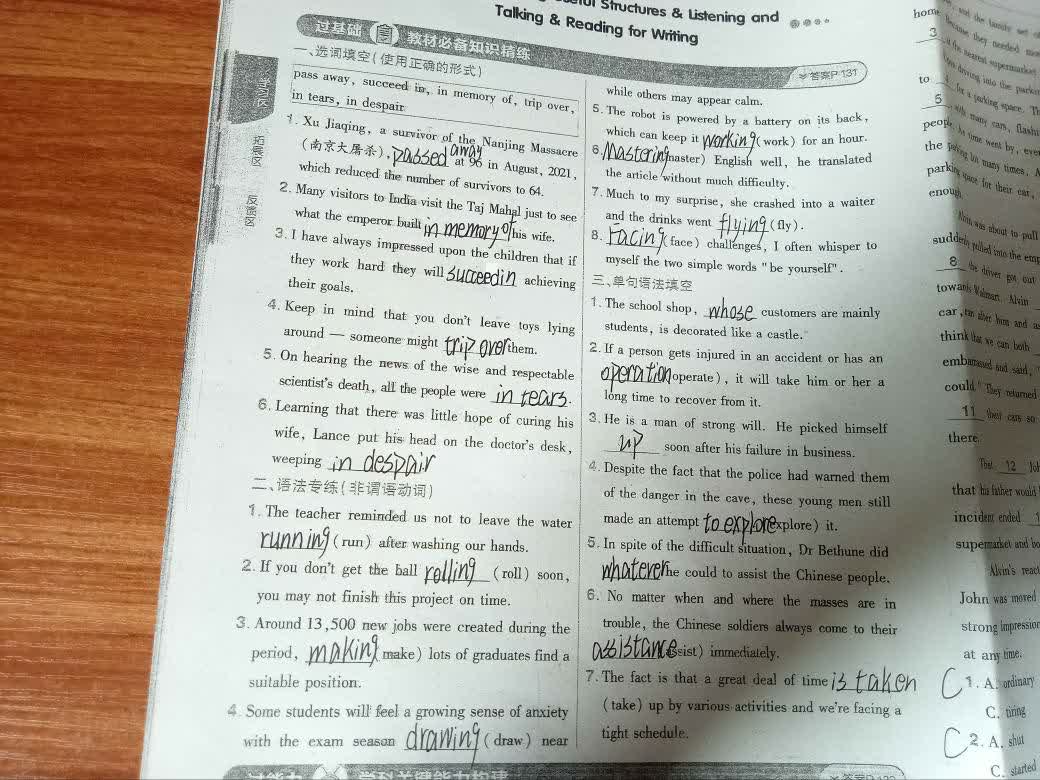 Useful Structures & Listening and
Talking & Reading for Writing
过基础 教材必备知识精练
答案P 131
一、选词填空(使用正确的形式)
pass away, succeed in, in memory of, trip over,
in tears, in despair
1. Xu Jiaqing, a survivor of the Nanjing Massacre
(南京大屠杀), passed away at 96 in August, 2021,
which reduced the number of survivors to 64.
2. Many visitors to India visit the Taj Mahal just to see
what the emperor built in memory of his wife.
3. I have always impressed upon the children that if
they work hard they will succeed in achieving
their goals.
4. Keep in mind that you don't leave toys lying
around — someone might trip over them.
5. On hearing the news of the wise and respectable
scientist's death, all the people were in tears.
6. Learning that there was little hope of curing his
wife, Lance put his head on the doctor's desk,
weeping in despair
二、语法专练(非谓语动词)
1. The teacher reminded us not to leave the water
running (run) after washing our hands.
2. If you don't get the ball rolling (roll) soon,
you may not finish this project on time.
3. Around 13,500 new jobs were created during the
period, making (make) lots of graduates find a
suitable position.
4. Some students will feel a growing sense of anxiety
with the exam season drawing (draw) near
while others may appear calm.
5. The robot is powered by a battery on its back,
which can keep it working (work) for an hour.
6. Mastering (master) English well, he translated
the article without much difficulty.
7. Much to my surprise, she crashed into a waiter
and the drinks went flying (fly).
8. Facing (face) challenges, I often whisper to
myself the two simple words "be yourself".
三、单句语法填空
1. The school shop, whose customers are mainly
students, is decorated like a castle.
2. If a person gets injured in an accident or has an
operation (operate), it will take him or her a
long time to recover from it.
3. He is a man of strong will. He picked himself
up soon after his failure in business.
4. Despite the fact that the police had warned them
of the danger in the cave, these young men still
made an attempt to explore (explore) it.
5. In spite of the difficult situation, Dr Bethune did
whatever he could to assist the Chinese people.
6. No matter when and where the masses are in
trouble, the Chinese soldiers always come to their
assistance (assist) immediately.
7. The fact is that a great deal of time is taken
(take) up by various activities and we're facing a
tight schedule.
学习区
拓展区
反馈区
home
3
to
5
people
the
parking space for their car,
enough.
Alvin was about to pull
suddenly pulled into the
8 the driver got out
towards Walmart. Alvin
car, ran after him and
think that we can both
embarrassed and said,
could." They returned
11 their cars so
there.
That 12
that his father would
incident ended
supermarket and
Alvin's
John was moved
strong impression
at any time.
C 1. A. ordinary
C. tiring
C 2. A. shut
C. started